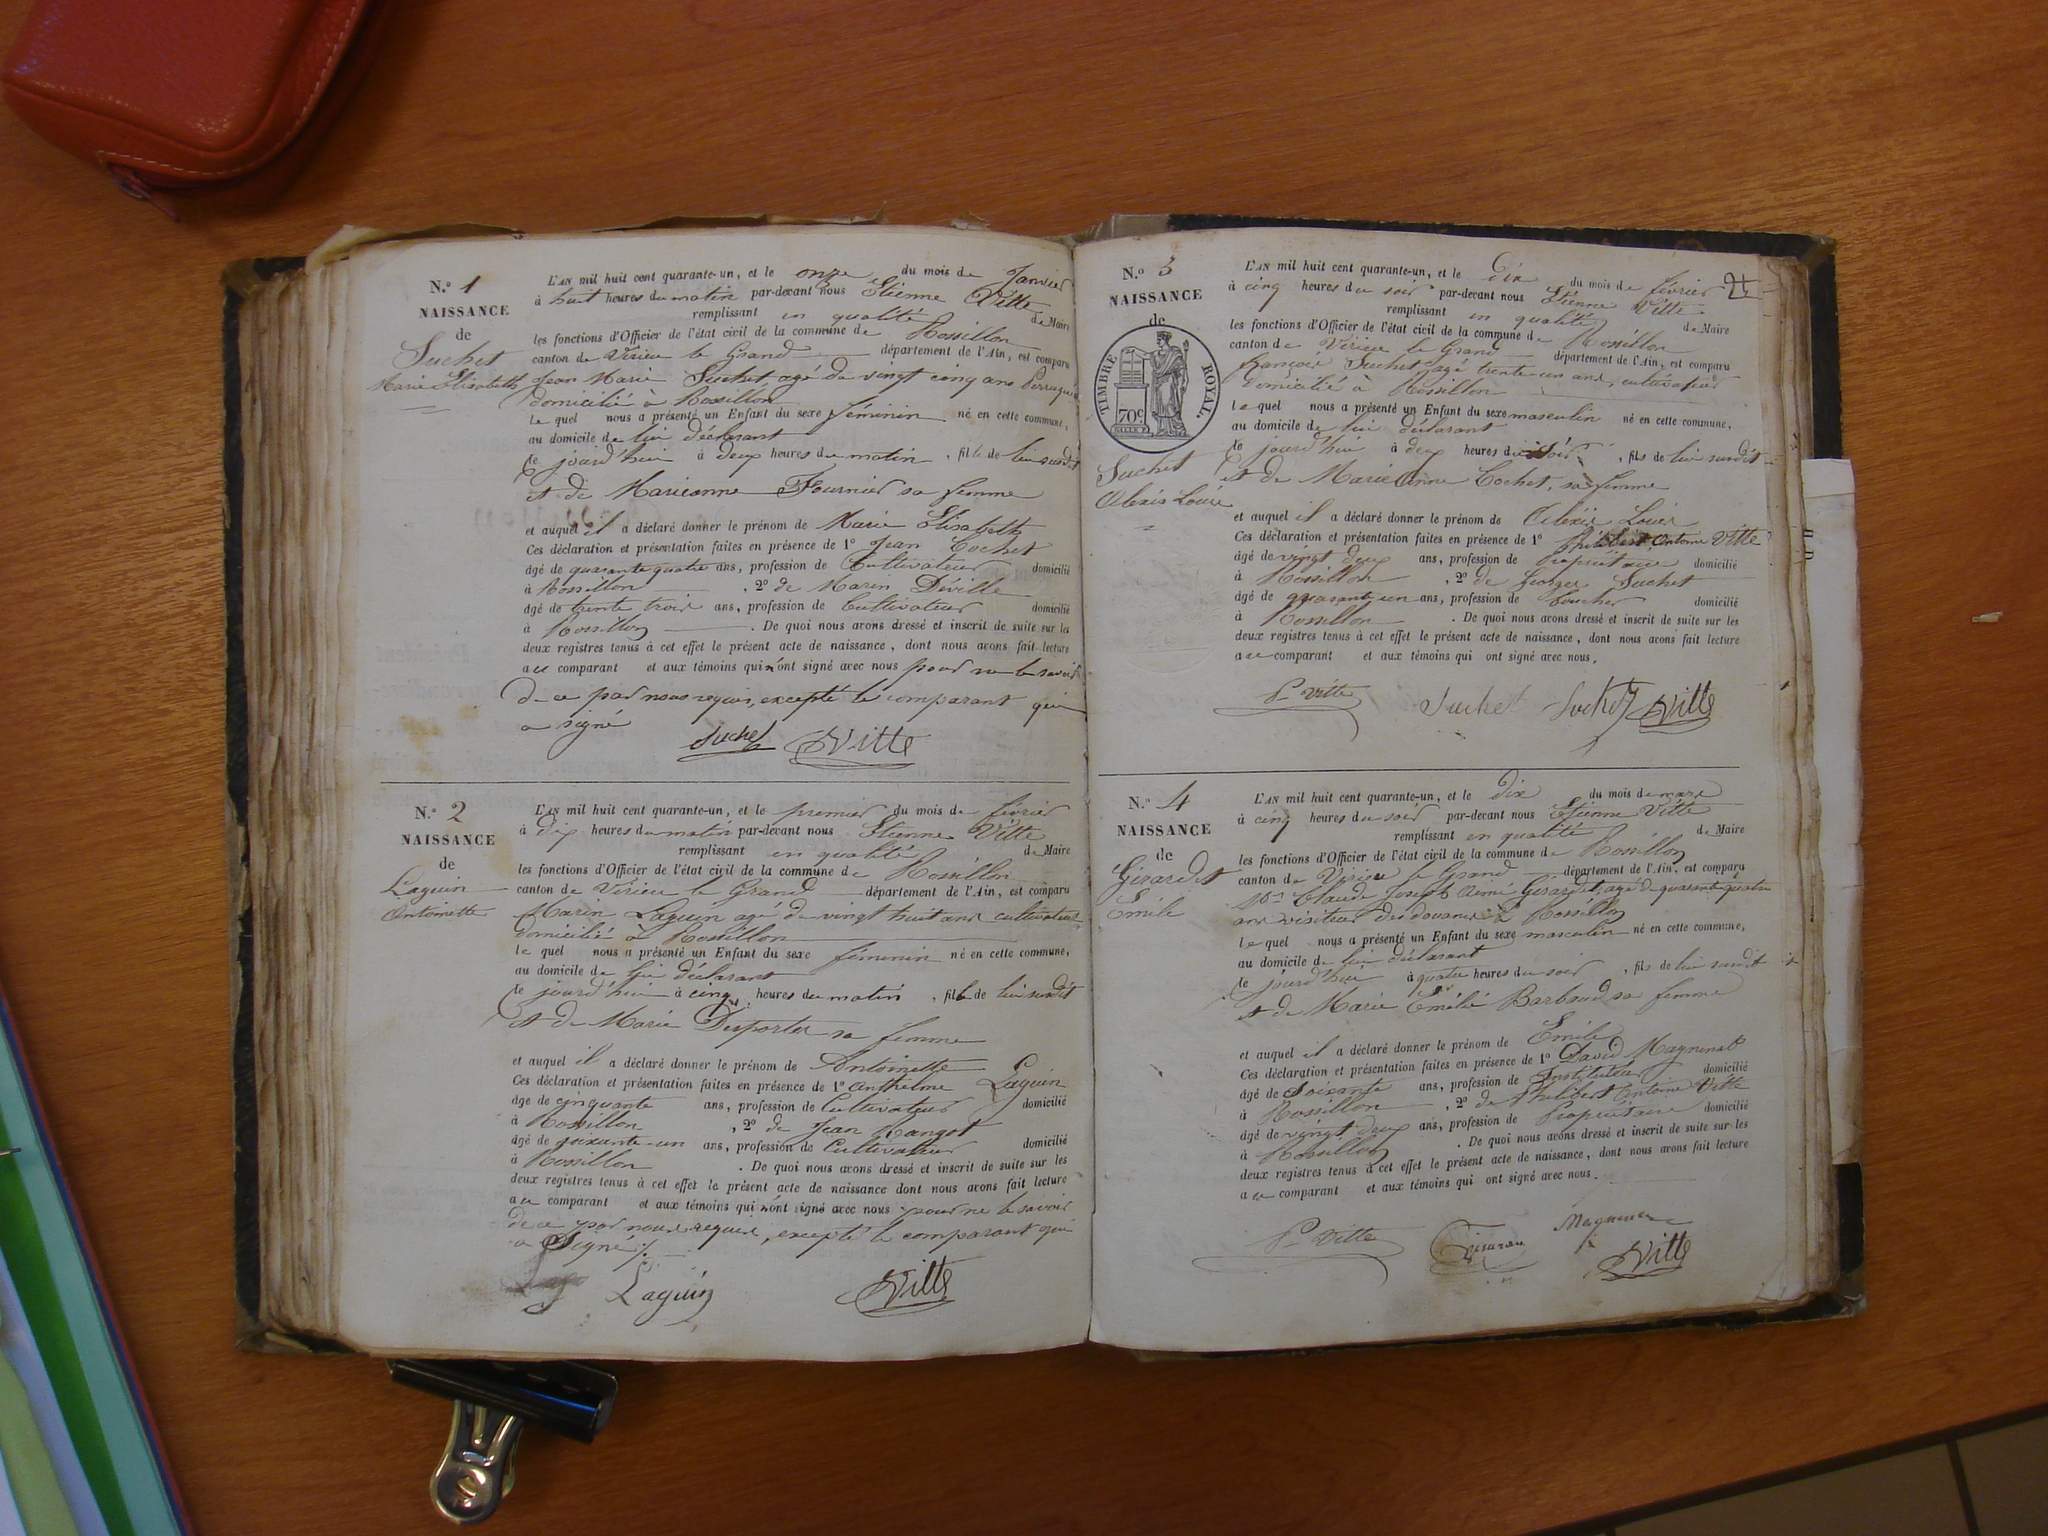 N.º 1
NAISSANCE
de
Suchet
Marie Elisabeth
L'AN mil huit cent quarante-un, et le onze du mois de Janvier
à huit heures du matin par-devant nous Etienne Vitte
remplissant en qualité de Maire
les fonctions d'Officier de l'état civil de la commune de Rossillon
canton de Virieu le Grand département de l'Ain, est comparu
Jean Marie Suchet agé de vingt cinq ans
domicilié à Rossillon
le quel nous a présenté un Enfant du sexe féminin né en cette commune,
au domicile de lui déclarant
le jourd'hui à deux heures du matin, fille de lui susdit
et de Marieanne Fournier sa femme
et auquel il a déclaré donner le prénom de Marie Elisabeth
Ces déclaration et présentation faites en présence de 1º Jean Cochet
âgé de quarante quatre ans, profession de Cultivateur domicilié
à Rossillon, 2º de Marin Déville
âgé de trente trois ans, profession de Cultivateur domicilié
à Rossillon. De quoi nous avons dressé et inscrit de suite sur les
deux registres tenus à cet effet le présent acte de naissance, dont nous avons fait lecture
au comparant et aux témoins qui n'ont signé avec nous pour ne le savoir
de ce par nous requis, excepté le comparant qui
a signé
Suchet Vitte
N.º 2
NAISSANCE
de
Laguin
Antoinette
L'AN mil huit cent quarante-un, et le premier du mois de février
à dix heures du matin par-devant nous Etienne Vitte
remplissant en qualité de Maire
les fonctions d'Officier de l'état civil de la commune de Rossillon
canton de Virieu le Grand département de l'Ain, est comparu
Marin Laguin agé de vingt huit ans cultivateur
domicilié à Rossillon
le quel nous a présenté un Enfant du sexe féminin né en cette commune,
au domicile de lui déclarant
le jourd'hui à cinq heures du matin, fille de lui susdit
et de Marie Desportes sa femme
et auquel il a déclaré donner le prénom de Antoinette
Ces déclaration et présentation faites en présence de 1º Anthelme Laguin
âgé de cinquante ans, profession de Cultivateur domicilié
à Rossillon, 2º de Jean Mangot
âgé de soixante-un ans, profession de Cultivateur domicilié
à Rossillon. De quoi nous avons dressé et inscrit de suite sur les
deux registres tenus à cet effet le présent acte de naissance dont nous avons fait lecture
au comparant et aux témoins qui n'ont signé avec nous pour ne le savoir
de ce par nous requis, excepté le comparant qui
a signé
Laguin Vitte
N.º 3
NAISSANCE
de
TIMBRE ROYAL.
70c
Suchet
Alexis Louis
L'AN mil huit cent quarante-un, et le dix du mois de février
à cinq heures du soir par-devant nous Etienne Vitte
remplissant en qualité de Maire
les fonctions d'Officier de l'état civil de la commune de Rossillon
canton de Virieu le Grand département de l'Ain, est comparu
françois Suchet, agé trente-un ans, cultivateur
domicilié à Rossillon
le quel nous a présenté un Enfant du sexe masculin né en cette commune,
au domicile de lui déclarant
le jourd'hui à deux heures du soir, fils de lui susdit
et de Marie Anne Cochet, sa femme
et auquel il a déclaré donner le prénom de Alexis Louis
Ces déclaration et présentation faites en présence de 1º Philibert Antoine Vitte
âgé de vingt deux ans, profession de Propriétaire domicilié
à Rossillon, 2º de Georges Suchet
âgé de quarante-un ans, profession de boucher domicilié
à Rossillon. De quoi nous avons dressé et inscrit de suite sur les
deux registres tenus à cet effet le présent acte de naissance, dont nous avons fait lecture
au comparant et aux témoins qui ont signé avec nous.
P. Vitte Suchet Suchet Vitte
N.º 4
NAISSANCE
de
Girardet
Emile
L'AN mil huit cent quarante-un, et le dix du mois de mars
à cinq heures du soir par-devant nous Etienne Vitte
remplissant en qualité de Maire
les fonctions d'Officier de l'état civil de la commune de Rossillon
canton de Virieu le Grand département de l'Ain, est comparu
Claude Joseph Aimé Girardet, agé de quarante quatre
ans visiteur des douanes à Rossillon
le quel nous a présenté un Enfant du sexe masculin né en cette commune,
au domicile de lui déclarant
le jourd'hui à quatre heures du soir, fils de lui susdit
et de Marie Emélie Barbaud sa femme
et auquel il a déclaré donner le prénom de Emile
Ces déclaration et présentation faites en présence de 1º David Magnenat
âgé de Soixante ans, profession de Instituteur domicilié
à Rossillon, 2º de Philibert Antoine Vitte
âgé de vingt deux ans, profession de Propriétaire domicilié
à Rossillon. De quoi nous avons dressé et inscrit de suite sur les
deux registres tenus à cet effet le présent acte de naissance, dont nous avons fait lecture
au comparant et aux témoins qui ont signé avec nous.
P. Vitte Vitte